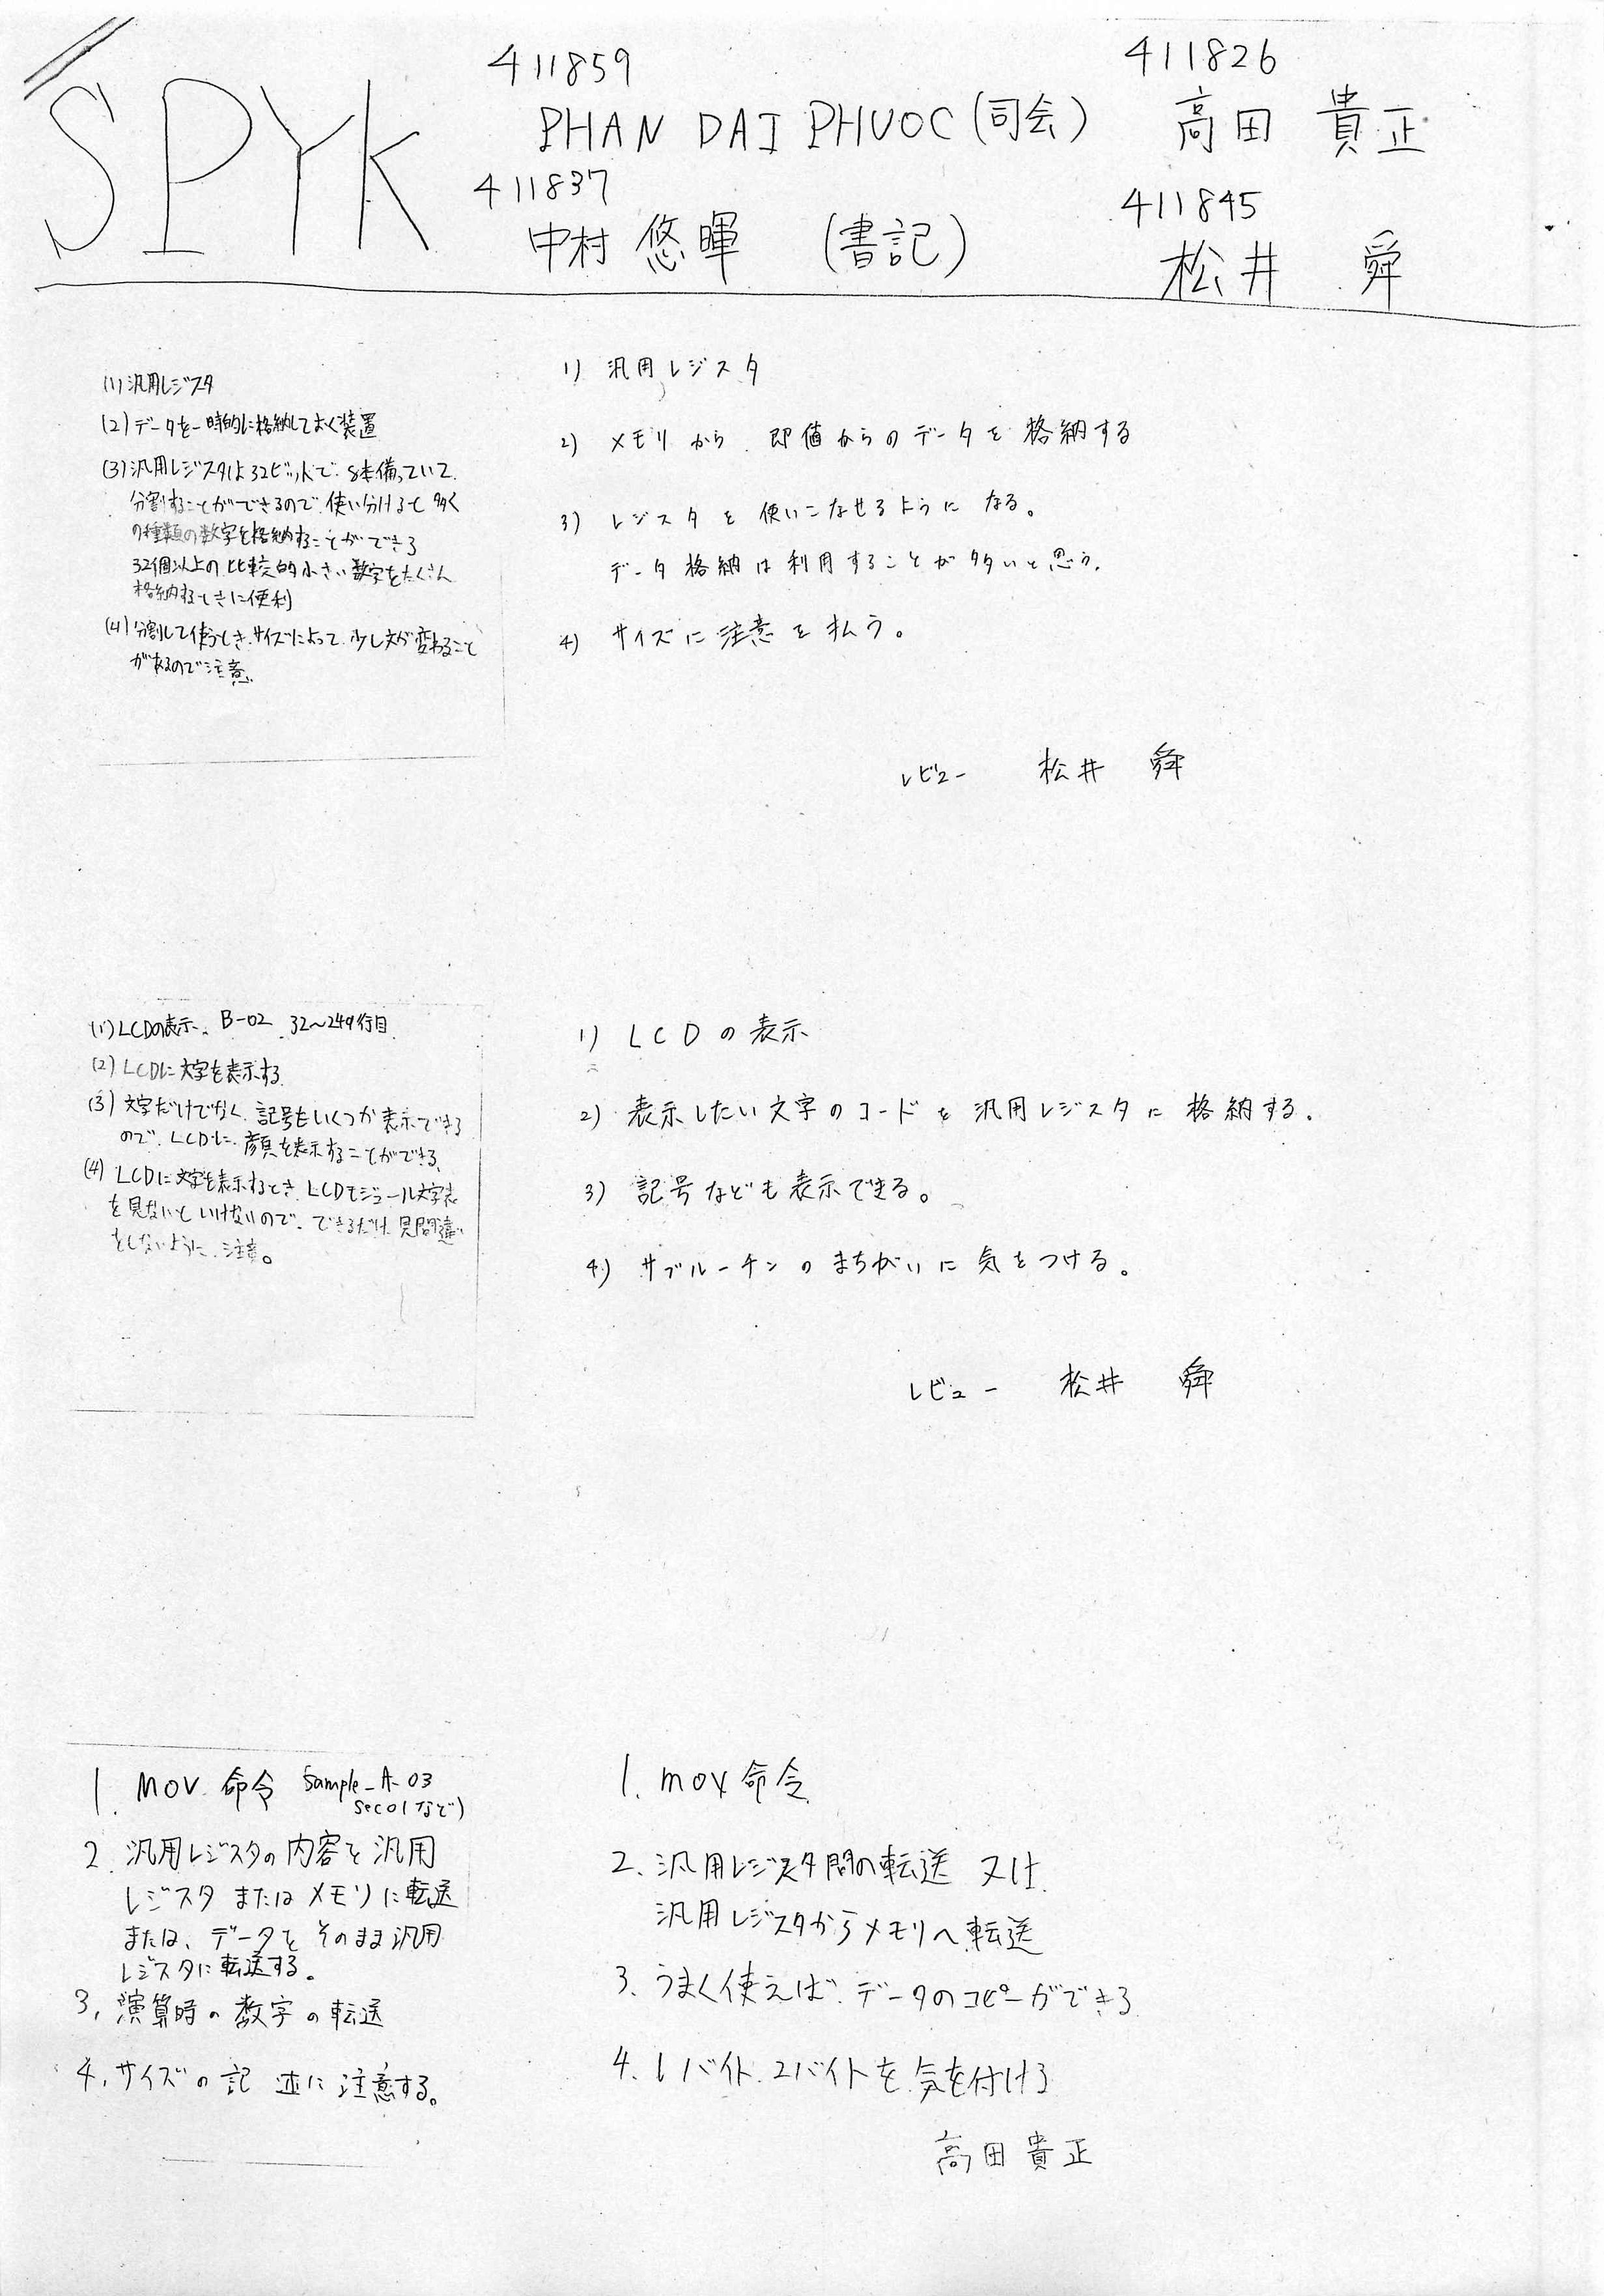 SPYK
411859
PHAN DAI PHUOC (司会)
411826
高田 貴正
411837
中村 悠暉 (書記)
411845
松井 舜
(1) 汎用レジスタ
(2) データを一時的に格納しておく装置
(3) 汎用レジスタは32ビットで、8本備っていて、
分割することができるので、使い分けると多く
の種類の数字を格納することができる
32個以上の比較的小さい数字をたくさん
格納するときに便利
(4) 分割して使うとき、サイズによって、少し大が変わること
があるので注意
1) 汎用レジスタ
2) メモリから、即値からのデータを格納する
3) レジスタを使いこなせるようになる。
データ格納は利用することが多いと思う。
4) サイズに注意を払う。
レビュー 松井 舜
(1) LCDの表示、B-02 32~249行目
(2) LCDに文字を表示する
(3) 文字だけでなく、記号もいくつか表示できる
ので、LCDに、顔を表示することができる
(4) LCDに文字を表示するとき、LCDモジュール文字表
を見ないといけないので、できるだけ見間違い
をしないように、注意。
1) LCDの表示
2) 表示したい文字のコードを汎用レジスタに格納する。
3) 記号なども表示できる。
4) サブルーチンのまちがいに気をつける。
レビュー 松井 舜
1. MOV 命令 Sample_A-03
sec01など)
2. 汎用レジスタの内容を汎用
レジスタまたはメモリに転送
または、データをそのまま汎用
レジスタに転送する。
3. 演算時の数字の転送
4. サイズの記述に注意する。
1. mov 命令
2. 汎用レジスタ間の転送 又は
汎用レジスタからメモリへ転送
3. うまく使えば、データのコピーができる
4. 1バイト、2バイトを気を付ける
高田貴正